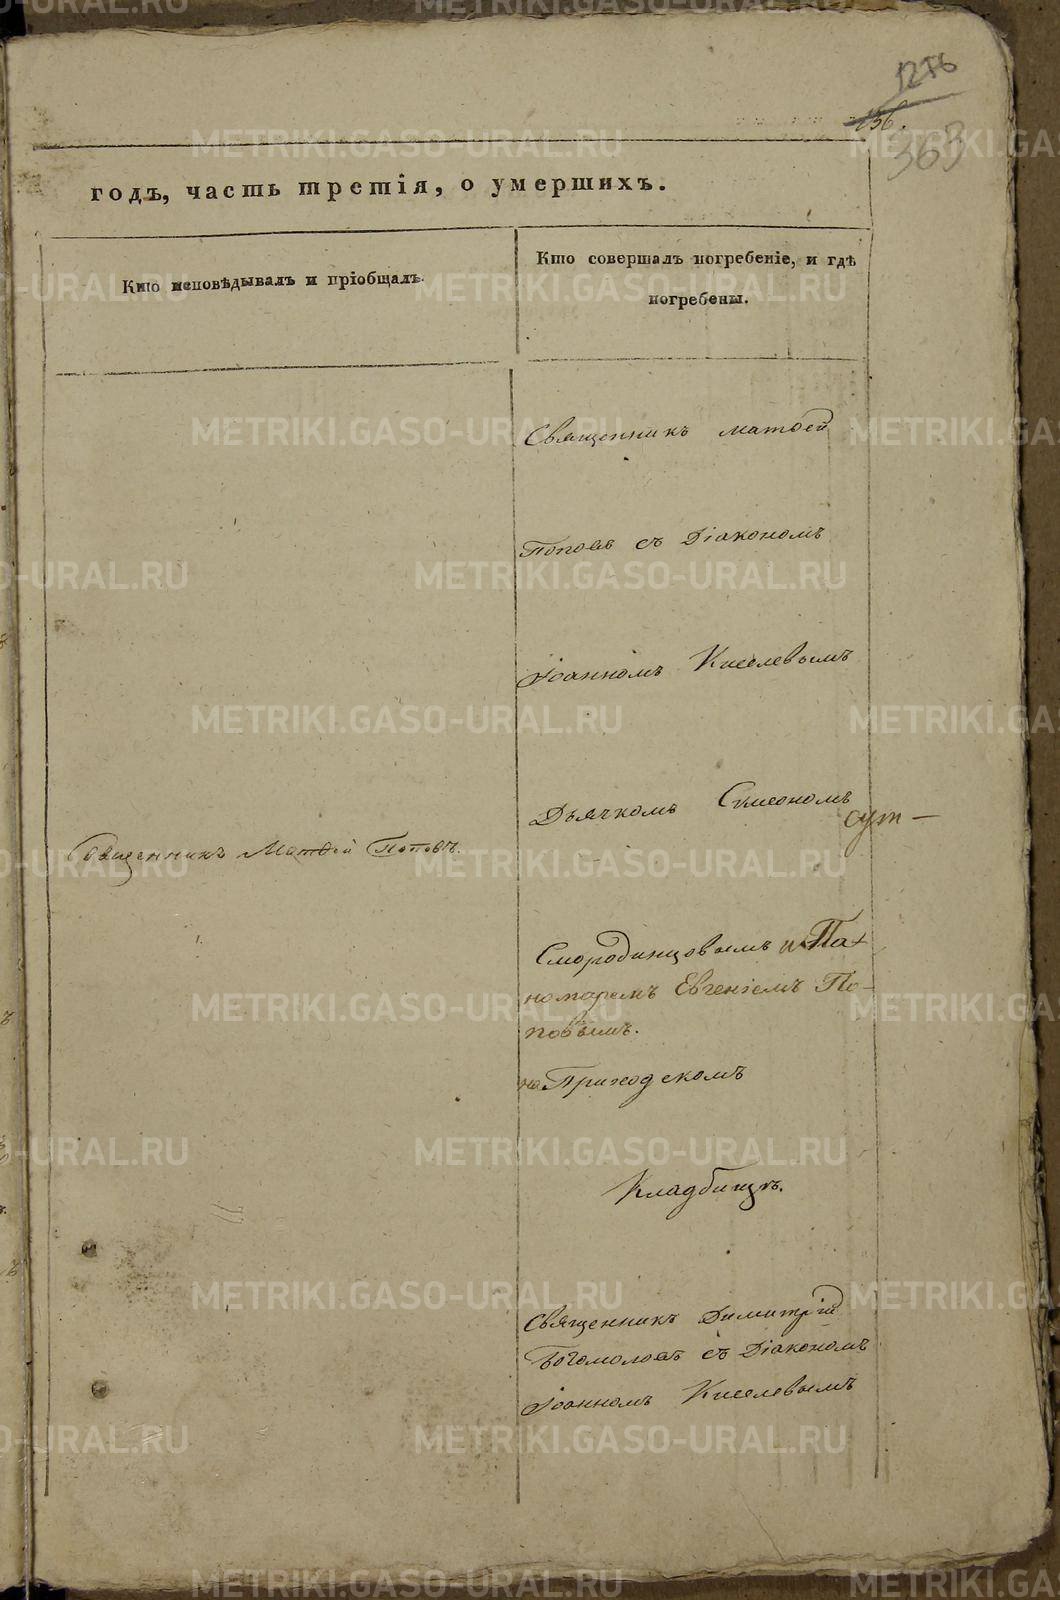 1276
156.
363
годъ, часть третія, о умершихъ.
Кто исповѣдывалъ и пріобщалъ.
Кто совершалъ погребеніе, и гдѣ
погребены.
Священникъ Матѳей
Поповъ съ Діакономъ
Іоанномъ Киселевымъ
Дьячкомъ Симеономъ
Священникъ Матѳей Поповъ.
Смородинцовымъ и По-
номаремъ Евгеніемъ По-
повымъ.
на Приходскомъ
Кладбищѣ.
Священникъ Димитрій
Богомоловъ съ Діакономъ
Іоанномъ Киселевымъ
METRIKI.GASO-URAL.RU